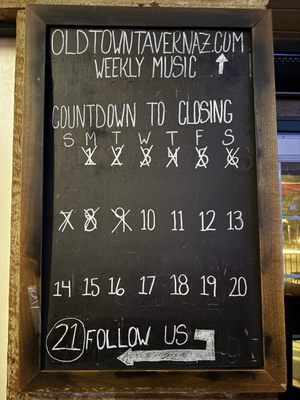 OLDTOWNTAVERNAZ.COM
WEEKLY MUSIC
COUNTDOWN TO CLOSING
S M T W T F S
1 2 3 4 5 6
7 8 9 10 11 12 13
14 15 16 17 18 19 20
21 FOLLOW US